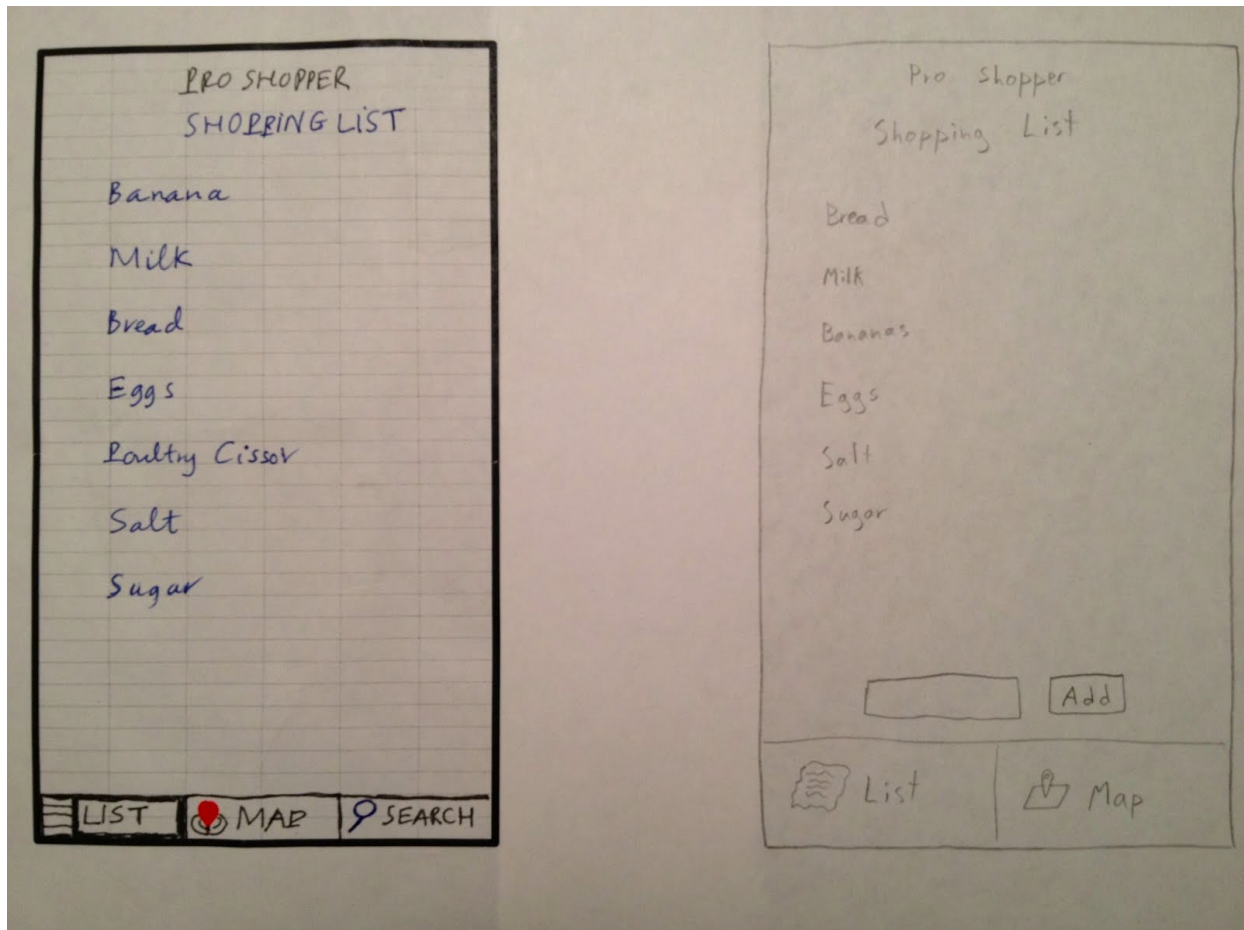 PRO SHOPPER
SHOPPING LIST
Banana
Milk
Bread
Eggs
Poultry Cissor
Salt
Sugar
LIST MAP SEARCH
Pro Shopper
Shopping List
Bread
Milk
Bananas
Eggs
Salt
Sugar
Add
List Map